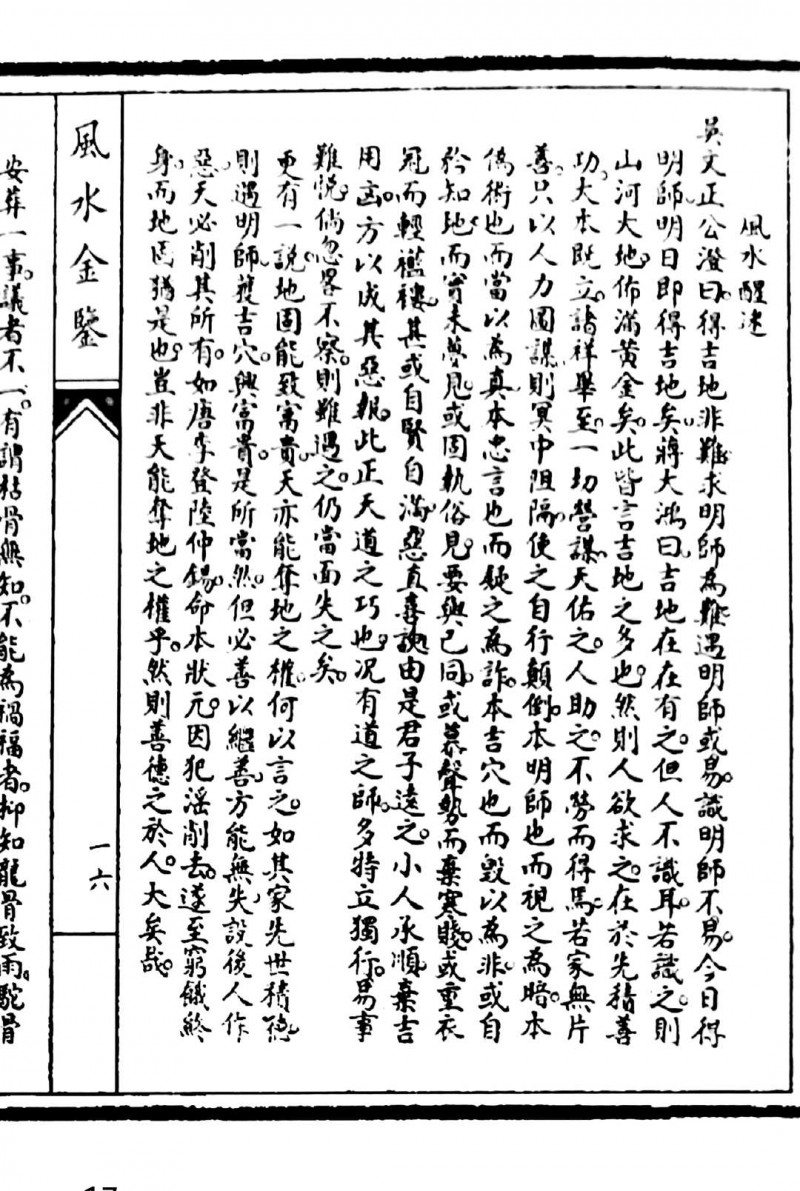 風水醒迷
吳文正公澄曰。得吉地非難。求明師為難。遇明師或易。識明師不易。今日得
明師。明日即得吉地矣。蔣大鴻曰。吉地在在有之。但人不識耳。若識之。則
山河大地。佈滿黃金矣。此皆言吉地之多也。然則人欲求之。在於先積善
功。大本既立。諸祥畢至。一切營謀。天佑之。人助之。不勞而得焉。若家無片
善。只以人力圖謀。則冥中阻隔。使之自行顛倒。本明師也。而視之為暗。本
偽術也。而當以為真。本忠言也。而疑之為詐。本吉穴也。而毀以為非。或自
矜知地。而實未夢見。或固執俗見。要與己同。或慕聲勢而棄寒賤。或重衣
冠而輕襤褸。甚或自賢自滿。惡直喜諛。由是君子遠之。小人承順。棄吉
用凶。方以成其惡報。此正天道之巧也。況有道之師。多特立獨行。易事
難悅。倘忽畧不察。則難遇之。仍當面失之矣。
更有一說。地固能致富貴。天亦能奪地之權。何以言之。如其家先世積德。
則遇明師。獲吉穴。興富貴。是所當然。但必善以繼善。方能無失。設後人作
惡。天必削其所有。如唐李登陸仲錫。命本狀元。因犯淫削去。遂至窮餓終
身。而地固猶是也。豈非天能奪地之權乎。然則善德之於人。大矣哉。
風水金鑒
一六
安葬一事。議者不一。有謂枯骨無知。不能為禍福者。抑知龍骨致雨。駝骨